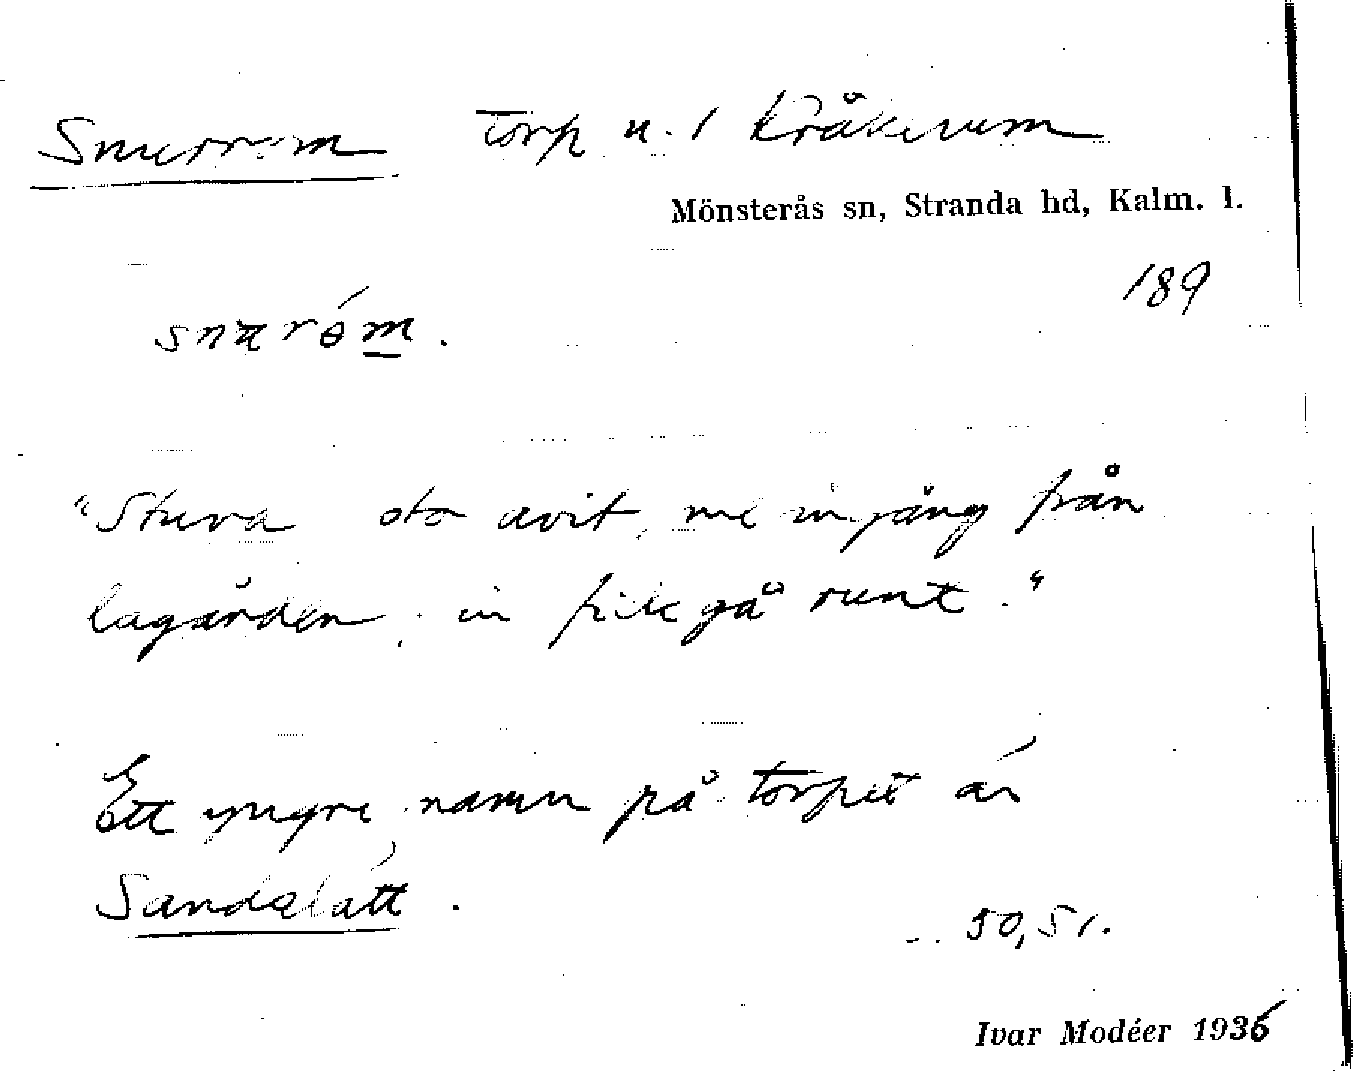 Snurrom Torp u. 1 Kråkerum
Mönsterås sn, Stranda hd, Kalm. l.
189
"Stuva sto avit, me ingång från
lagården, in fick gå runt."
Ett yngre namn på torpet är
Sandslätt.
50,51.
Ivar Modéer 1936